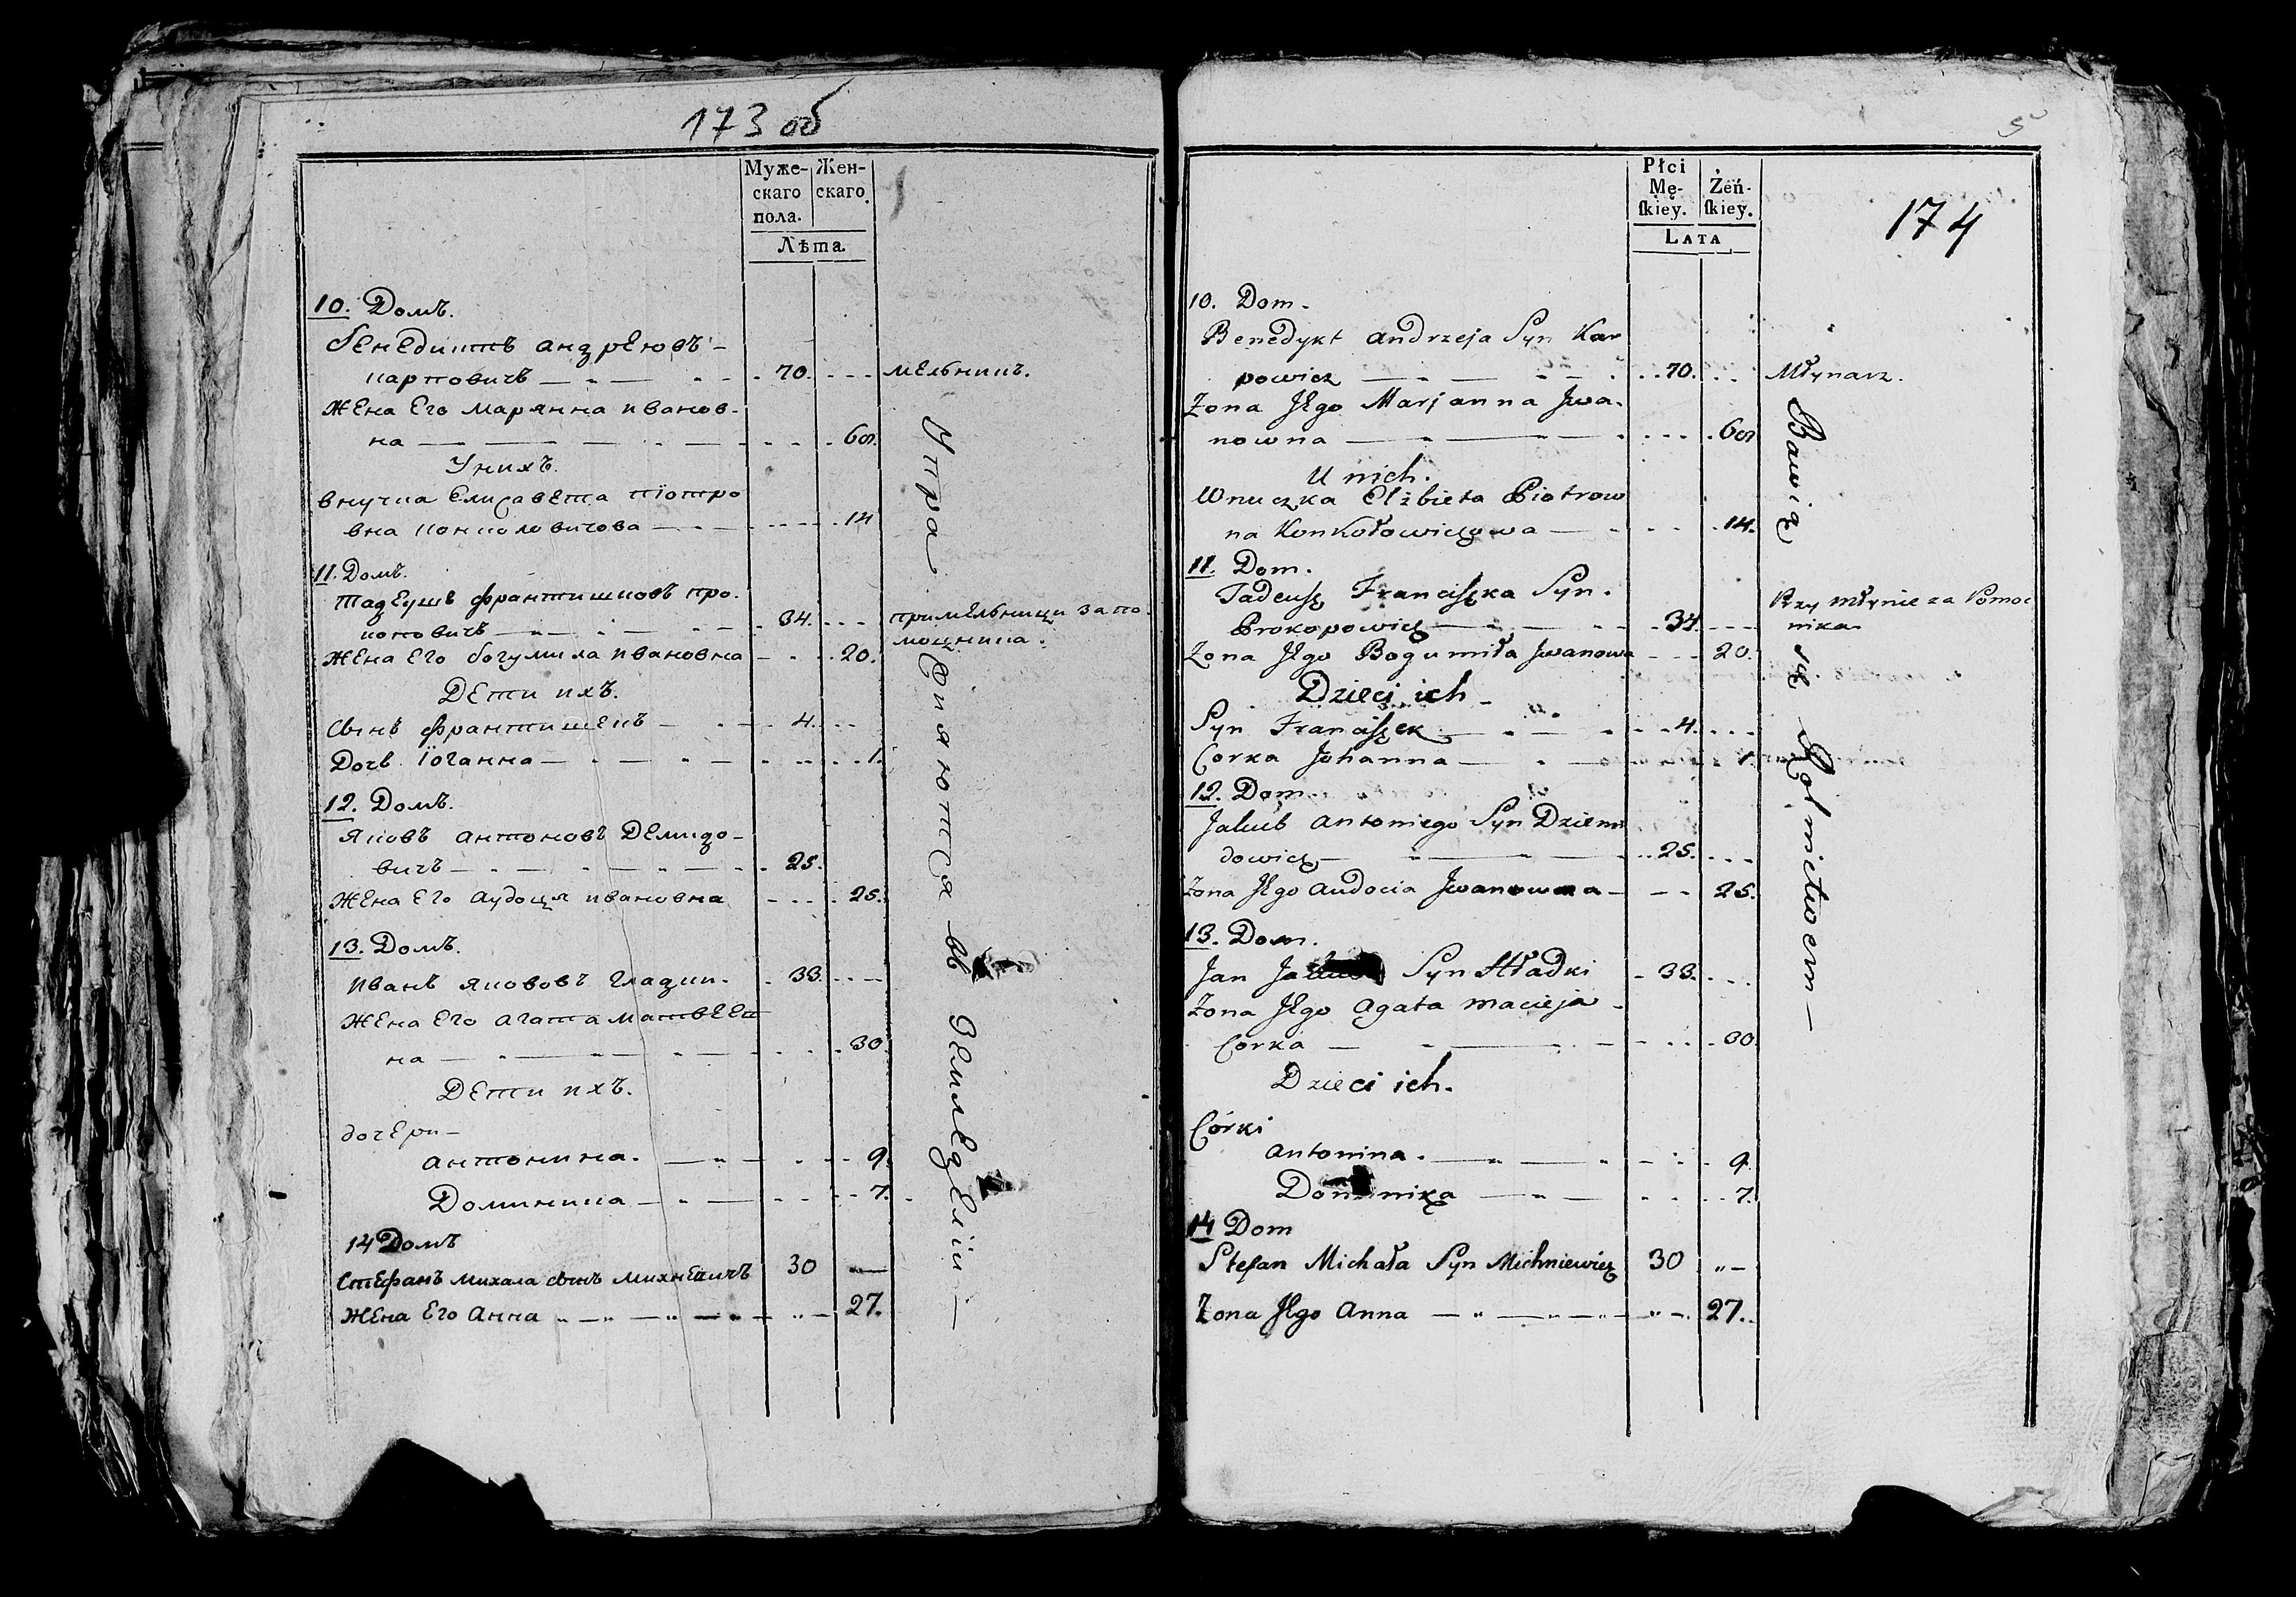 173 об
Муже- Жен-
скаго скаго.
пола.
Лѣта.
10. Домъ.
Бенедиктъ андреювъ -
карповичъ — 70. мельникъ.
Жена Его Марянна иванов-
на — 60.
У нихъ.
внучка Елисавета пїотро
вна конколовичова — 14
11. Домъ.
Тадеушъ франтишковъ про.
коповичъ — 34. примельници за по.
мощника.
Жена Его богумила ивановна — 20.
Дети ихъ.
Сынъ франтишекъ — 4.
Дочь їоганна — 1.
12. Домъ.
Яковъ антоновъ Демидо-
вичъ — 25.
Жена Его аудоця ивановна 25.
13. Домъ.
иванъ якововъ гладки. 33.
Жена Его агата матвеев
на — 30.
Дети ихъ.
дочери —
антонина. — 9.
Доминика — 7.
14 Домъ
Стефанъ михала сынъ михневичъ 30 —
Жена Его Анна — 27.
Упражняются въ земледелїи —
5
174
Płci
Mę- Żeń-
ſkiey. ſkiey.
LATA
10. Dom.
Benedykt andrzeja Syn Kar
powicz — 70. Młynarz.
Żona Jego Marjanna Jwa.
nowna — 60
U nich.
Wnuczka Elżbieta Piotrow
na Konkołowiczowa — 14.
11. Dom.
Tadeusz Franciszka Syn.
Prokopowicz — 34. Przy młynie za Pomoc
nika.
Żona Jego Bogumiła Jwanowa 20.
Dzieci ich
Syn Franciszek — 4.
Corka Johanna — 1.
12. Dom.
Jakub antoniego Syn Dziemi
dowicz — 25.
Żona Jego audocia Jwanowna — 25.
13. Dom.
Jan Syn Hładki 33.
Żona Jego agata macieja
Corka — 30.
Dzieci ich.
Córki
antonina. — 9.
Dominika — 7.
14 Dom
Stefan Michała Syn Michniewicz 30 „—
Żona Jego Anna — 27.
Bawią się Rolnictwem —